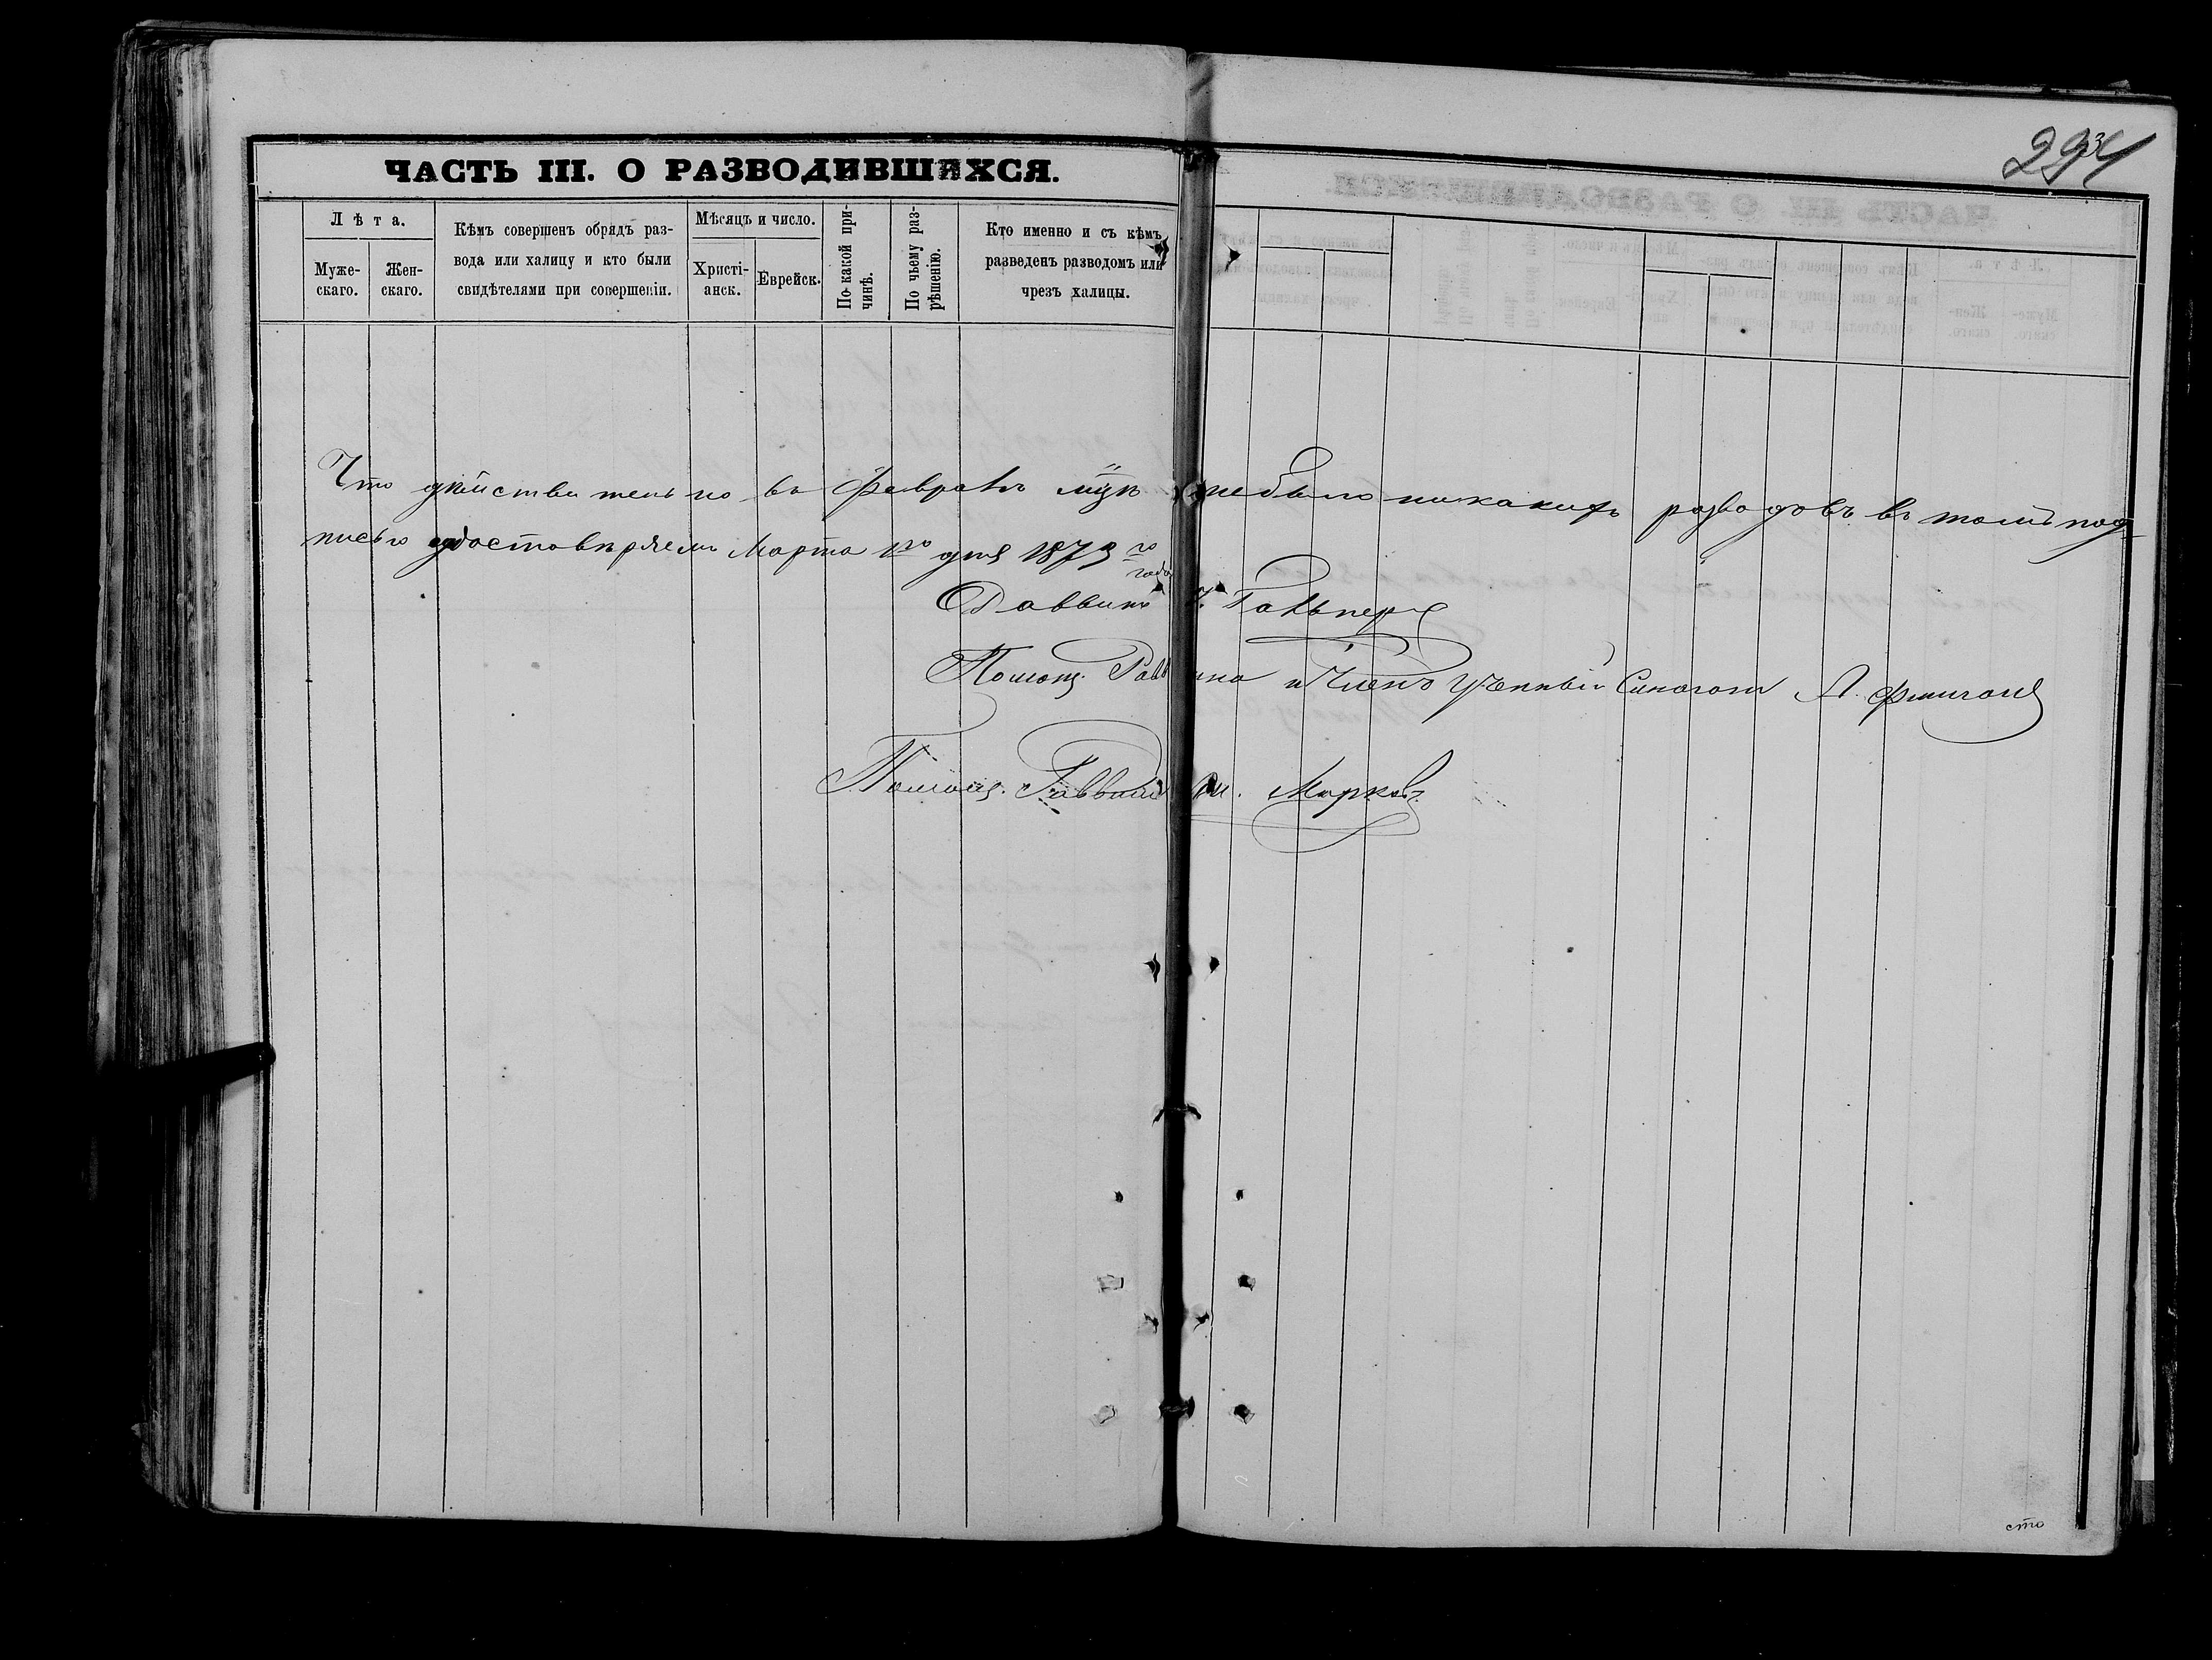 294
ЧАСТЬ III. О РАЗВОДИВШИХСЯ.
Лѣта.
Муже-
скаго.
Жен-
скаго.
Кѣмъ совершенъ обрядъ раз-
вода или халицу и кто были
свидѣтелями при совершеніи.
Мѣсяцъ и число.
Христі-
анск.
Еврейск.
По какой при-
чинѣ.
По чьему раз-
рѣшенію.
Кто именно и съ кѣмъ
разведенъ разводомъ или
чрезъ халицы.
Что дѣйствительно въ Февралѣ м-цѣ небыло никакихъ разводовъ въ томъ под-
писью удостовѣряемъ Марта 1го дня 1873 го
года
Раввинъ Гальперъ
Помощ. Раввина и Членъ Ученный Синагоги Л.
Помощ. Раввина М. Марковъ
сто